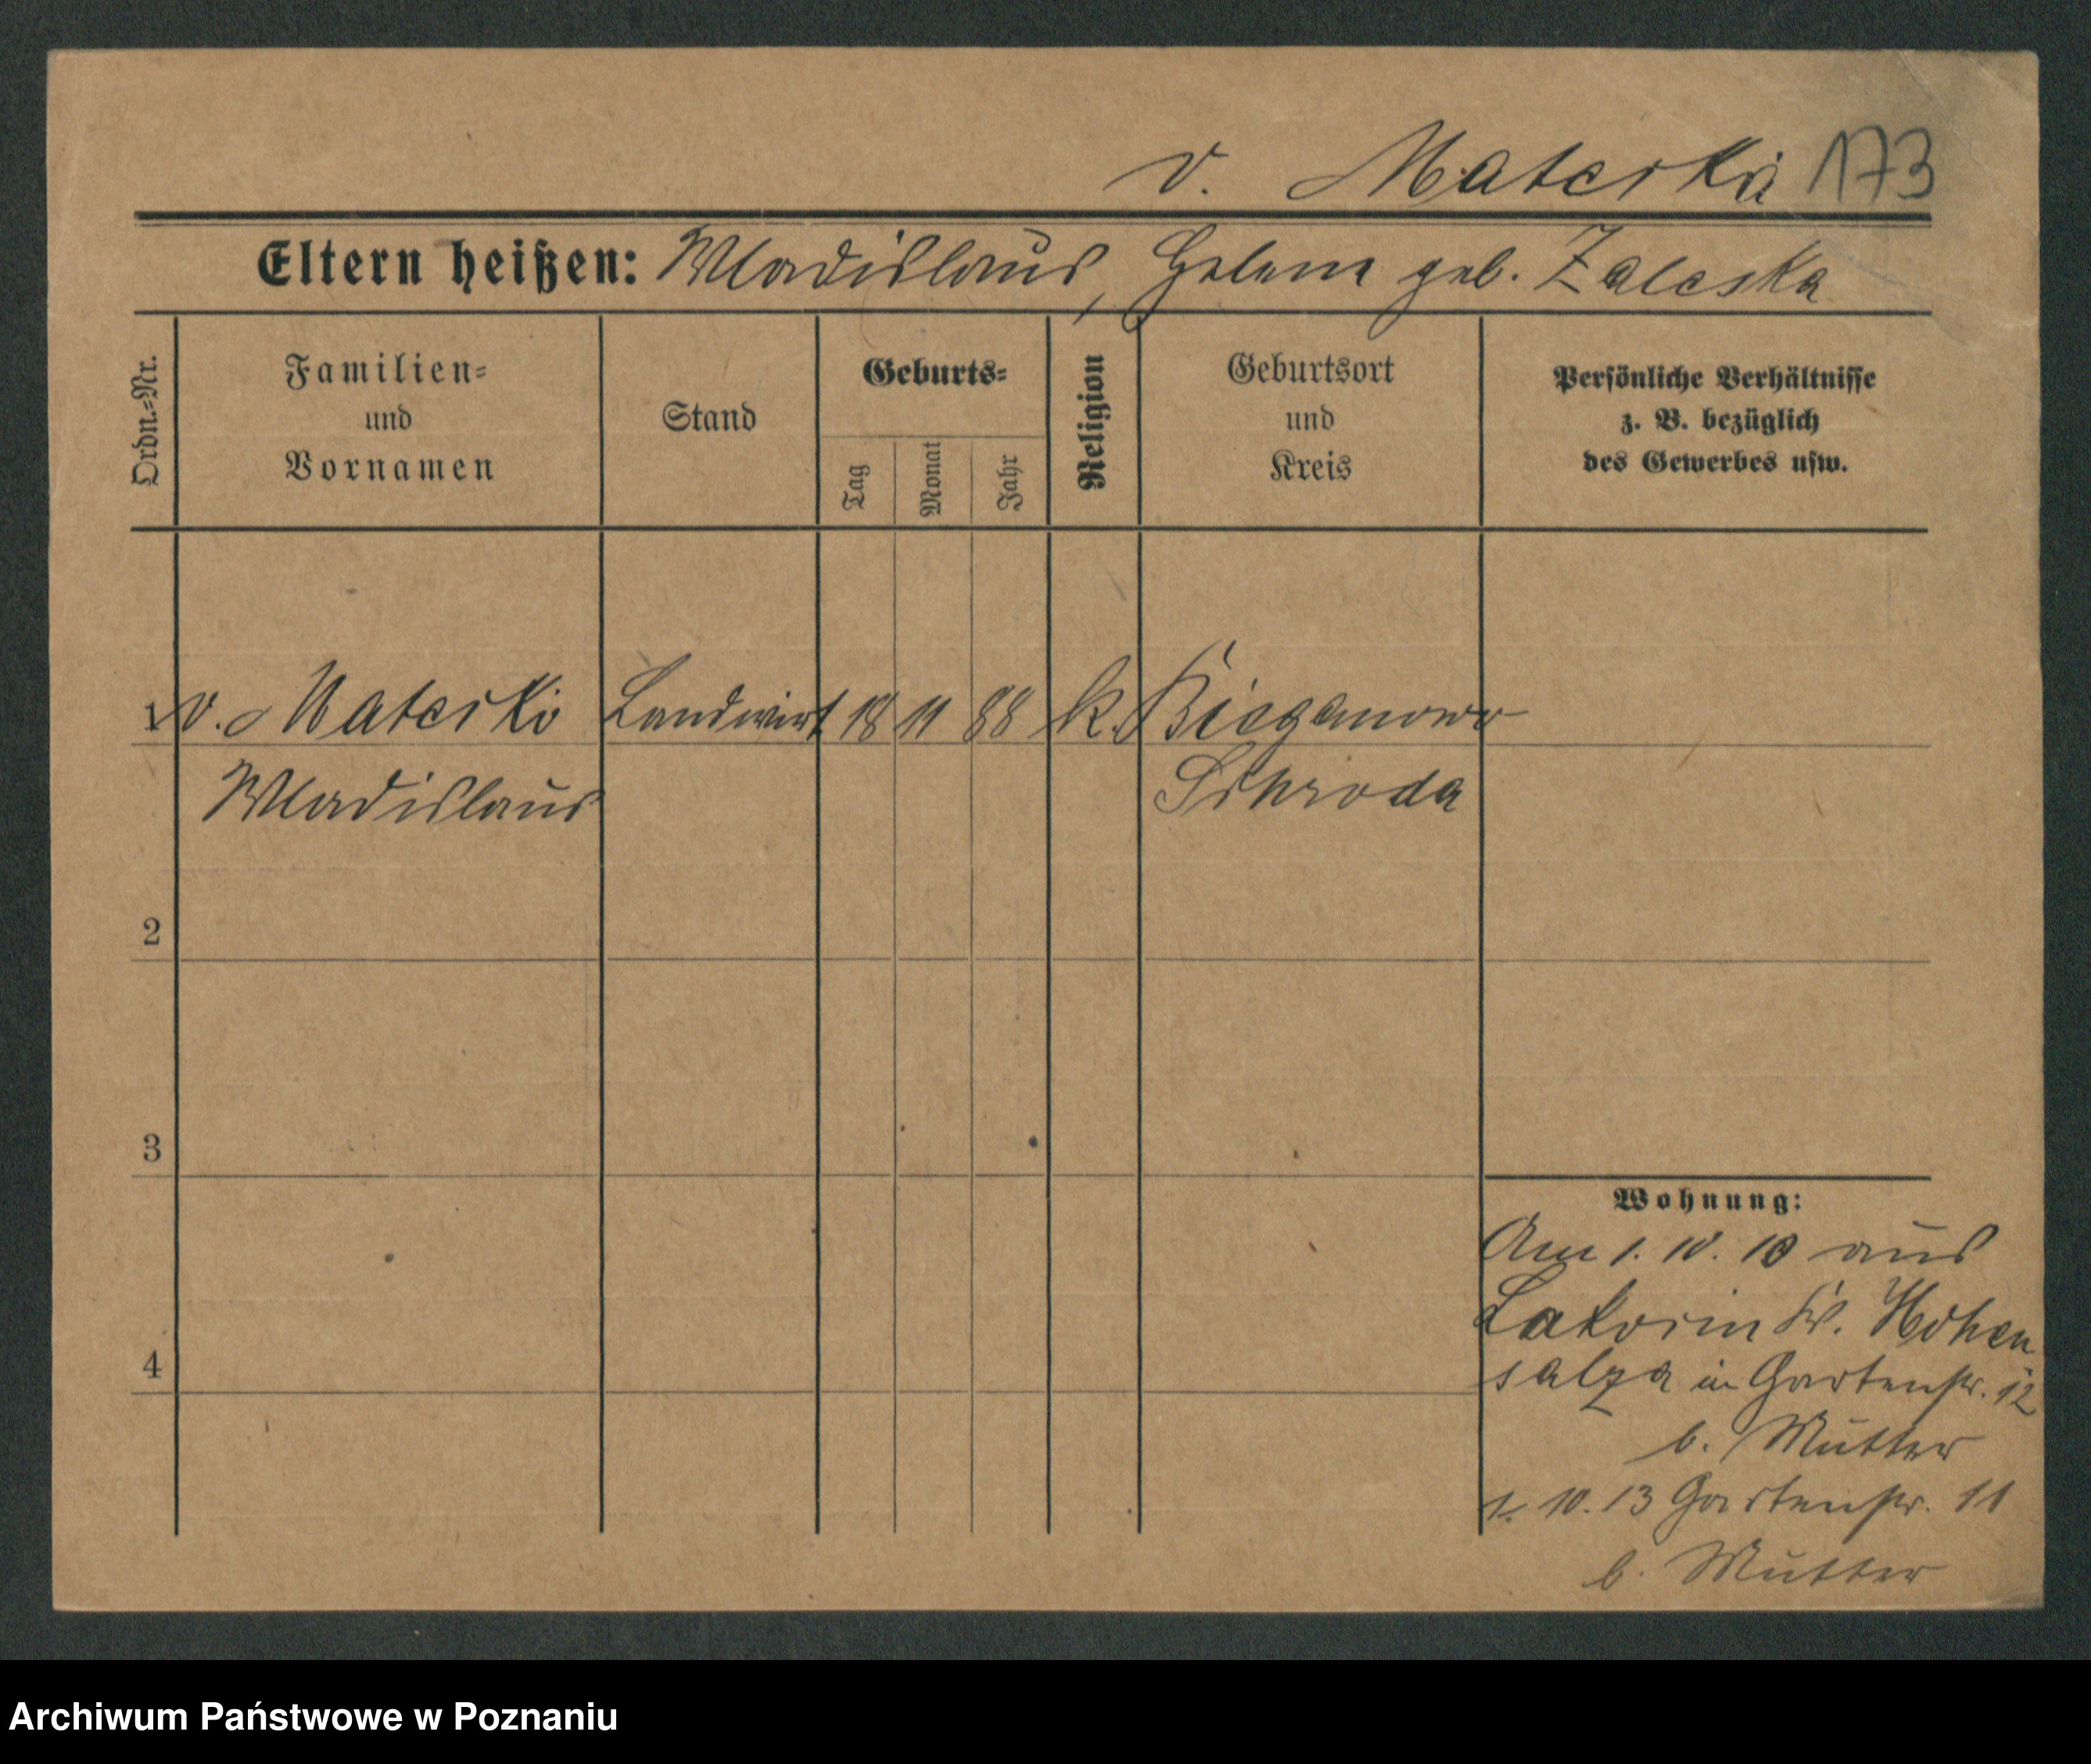 v. Materski 173
Eltern heißen: Wladislaus, Helene geb. Zaleska
Ordn.=Nr.
Familien=
und
Vornamen
Stand
Geburts=
Tag
Monat
Jahr
Religion
Geburtsort
und
Kreis
Persönliche Verhältnisse
z. B. bezüglich
des Gewerbes usw.
1 v. Materski Landwirt 18 11 88 k. Bieganowo
Wladislaus Schroda
2
3
4
Wohnung:
Am 1. 10. 10 aus
Kr. Hohen
salza in Gartenstr. 12
b. Mutter
1. 10. 13 Gartenstr. 11
b. Mutter
Archiwum Państwowe w Poznaniu